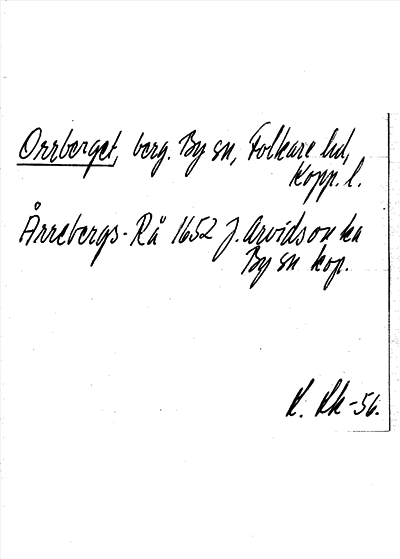 Orrberget, berg. By sn, Folkare hd,
Kopp. l.
Årrebergs-Rå 1652 J. Arvidson ka
By sn kop.
K. Lk -56.